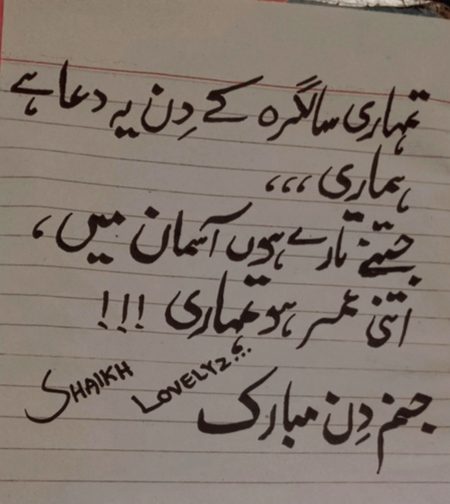 تمہاری سالگرہ کے دِن یہ دعا ہے
ہماری ،،،
جتنے تارے ہوں آسمان میں ،
اتنی عمر ہو تمہاری !!!
SHAIKH
LOVELYZ...
جنم دِن مبارک